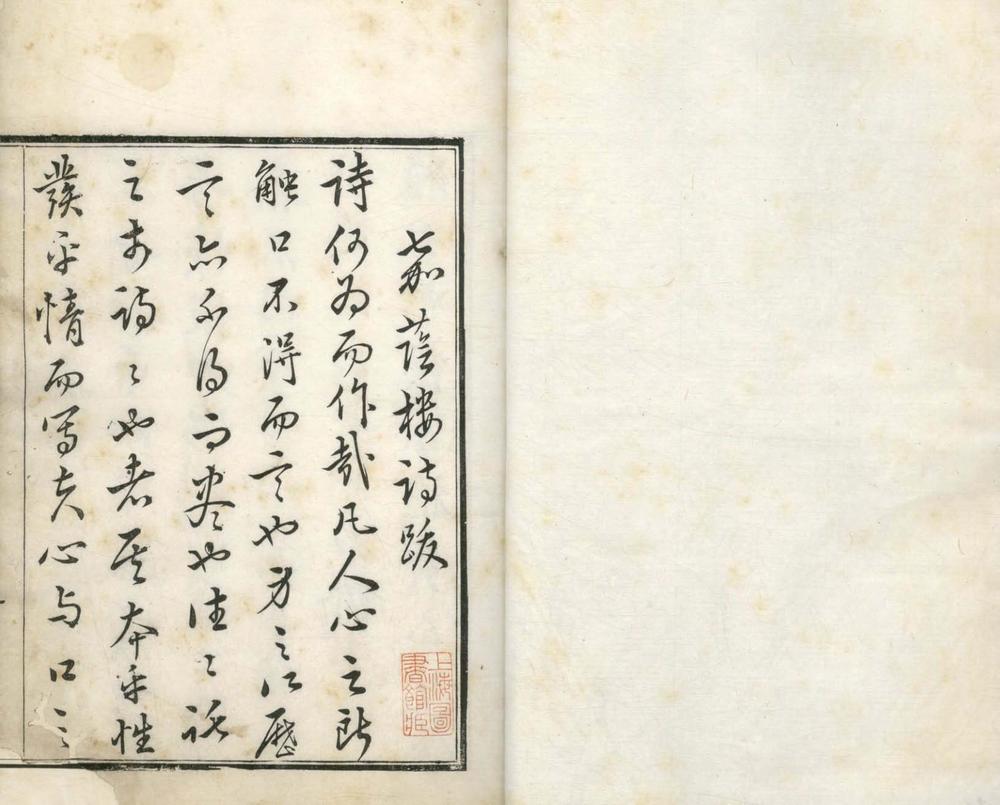 嘉蔭樓詩跋
詩何為而作哉凡人心之所
触口不得而言也身之所歷
言亦不得而盡也往〻託
之於詩〻也者其本乎性
發乎情而寫夫心与口之
上海圖
書館藏